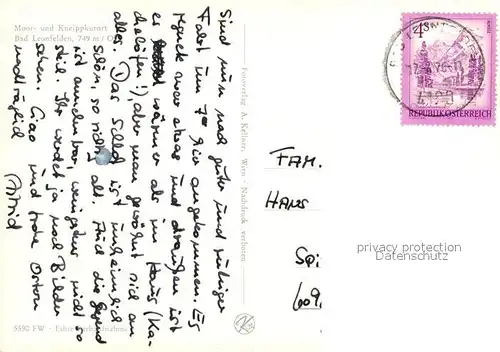 Moor- und Kneippkurort
Bad Leonfelden, 749 m / O
Sind nun nach guter und ruhiger
Fahrt um 7h hier angekommen. Es
regnet zwar etwas und draußen ist
es wärmer als im Haus (Ka-
chelöfen!), aber man gewöhnt sich an
alles. Das Schloß ist unheimlich
schön, so richtig alt. Auch die Gegend
ist annehmbar, wenigstens nicht so
steil. Ihr werdet ja noch Bilder
sehen. Ciao und frohe Ostern
nachträglich
Astrid
5590 FW
Fotoverlag A. Kellner, Wien - Nachdruck verboten
4
REPUBLIK ÖSTERREICH
FAM.
HANS
privacy protection
Datenschutz